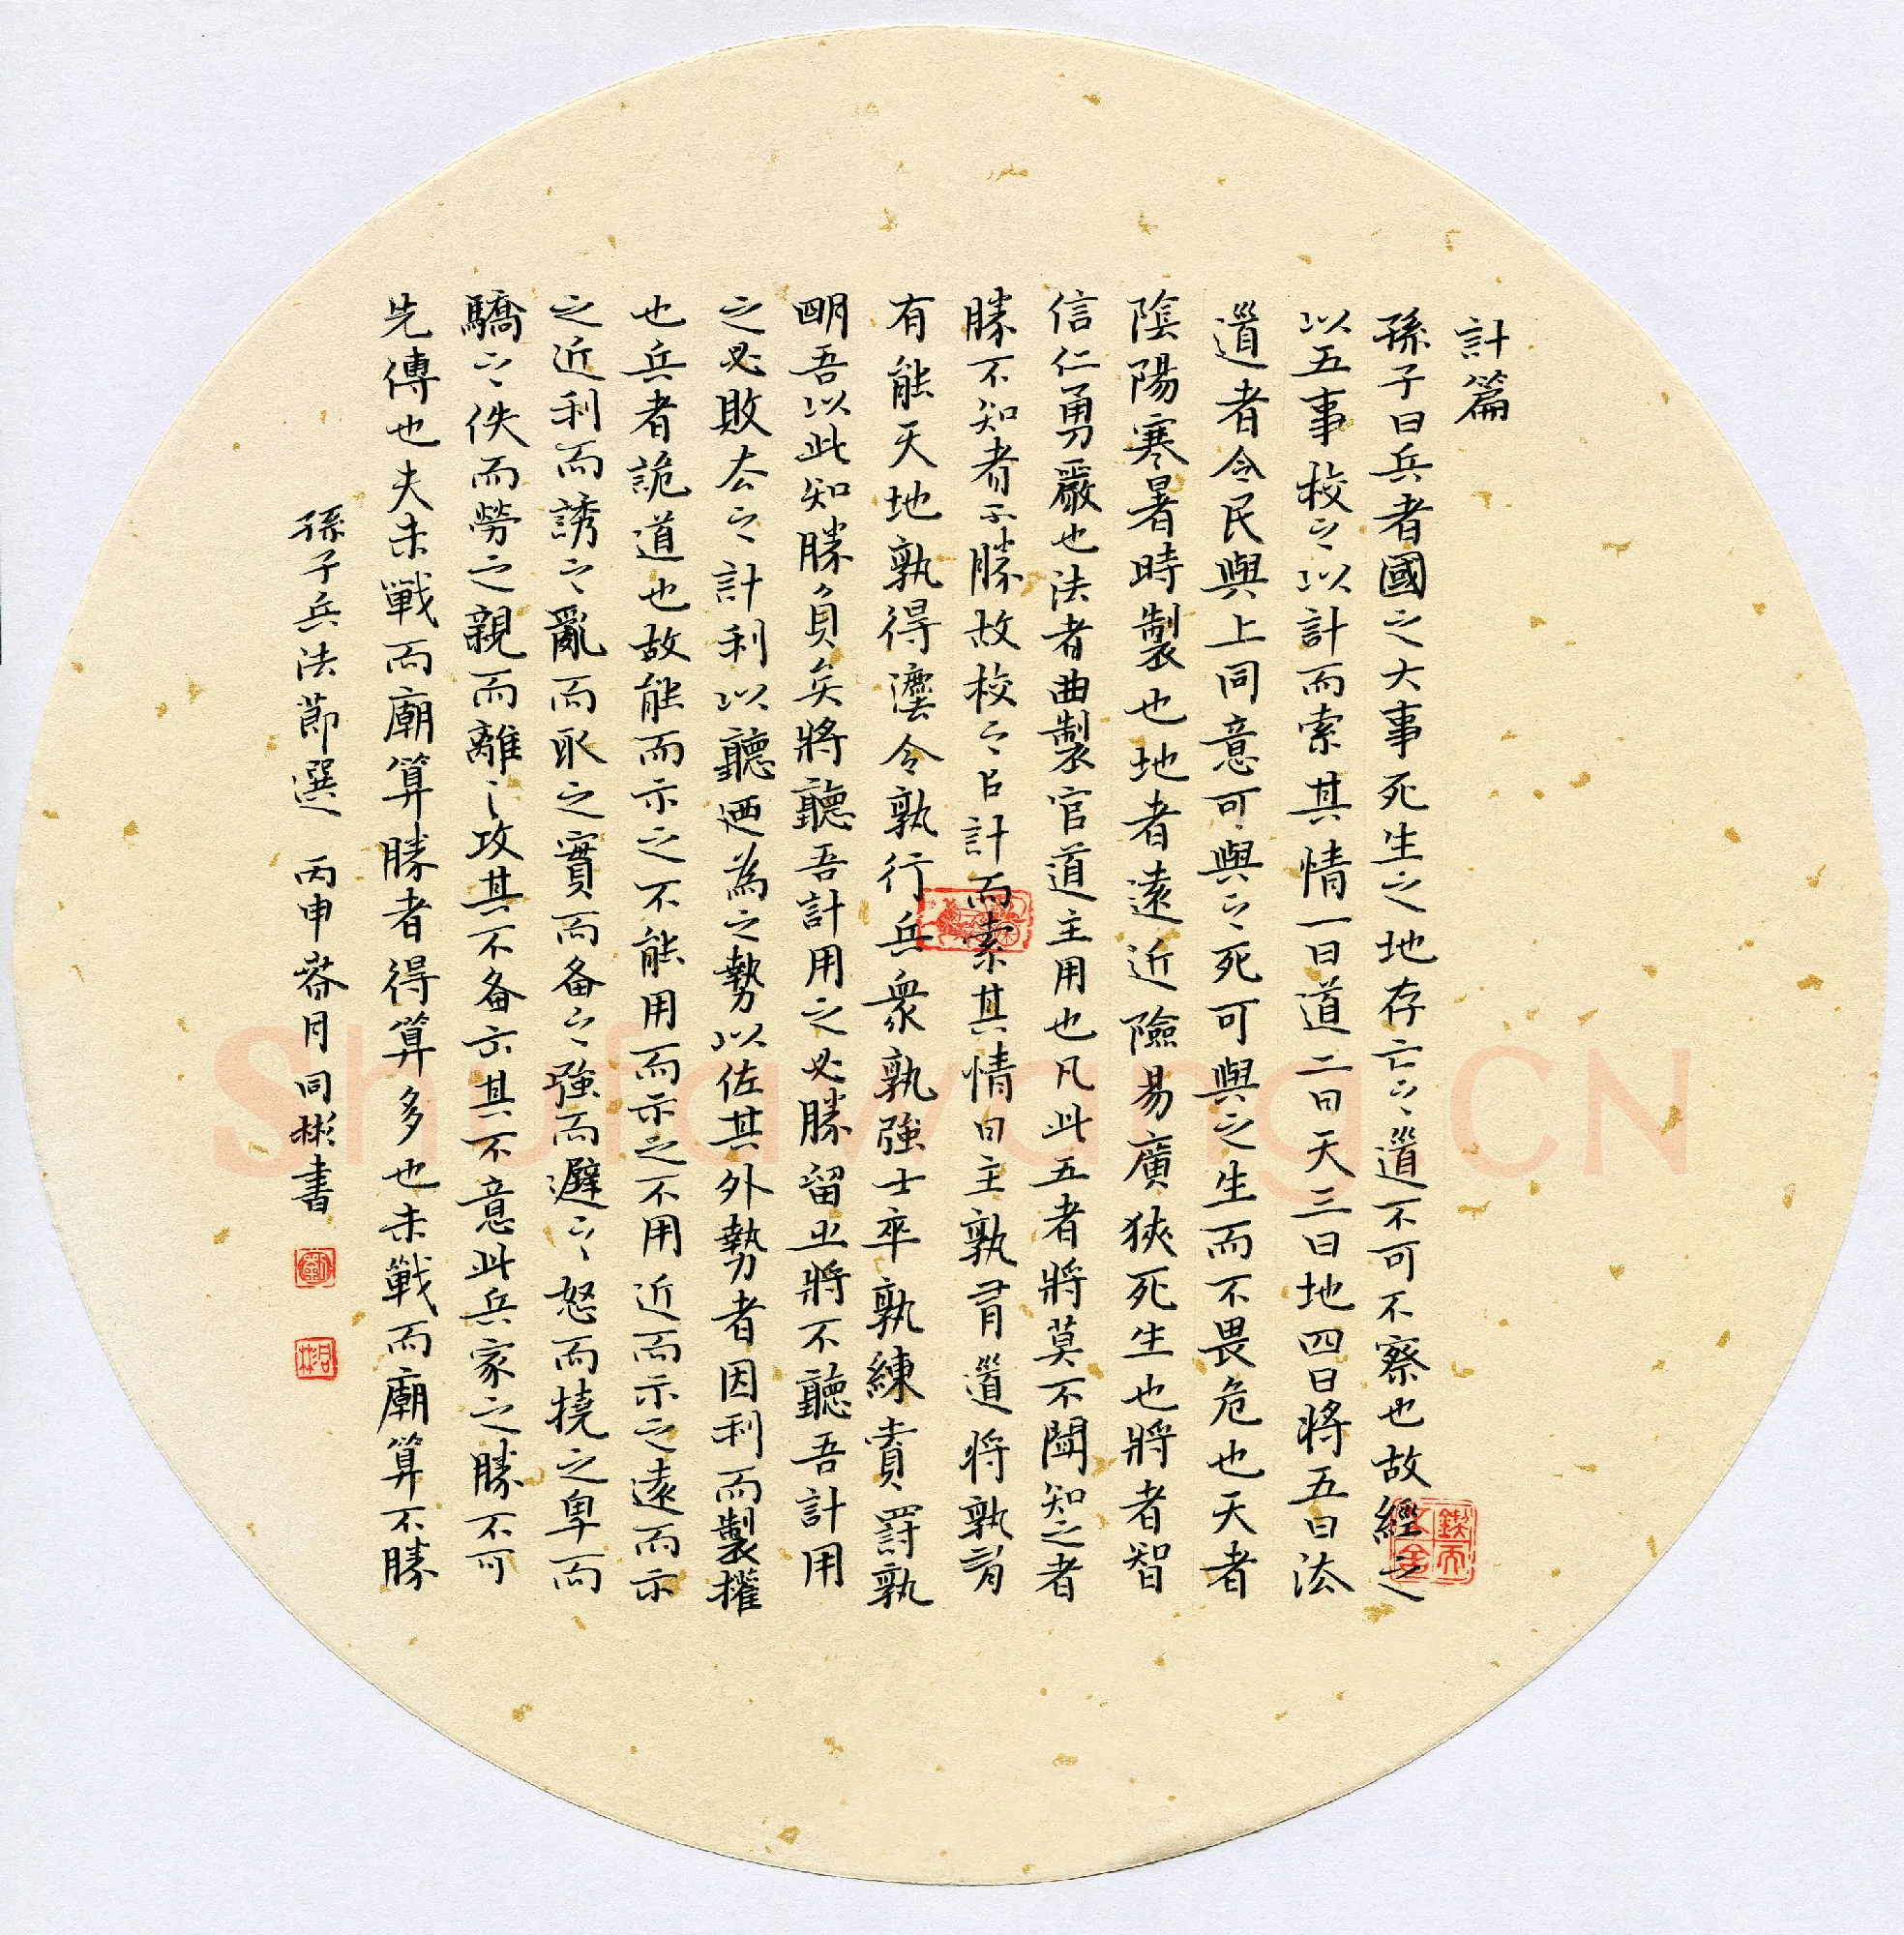 計篇
孫子曰兵者國之大事死生之地存亡之道不可不察也故經之
以五事校之以計而索其情一曰道二曰天三曰地四曰將五曰法
道者令民與上同意可與之死可與之生而不畏危也天者
陰陽寒暑時製也地者遠近險易廣狹死生也將者智
信仁勇嚴也法者曲製官道主用也凡此五者將莫不聞知之者
勝不知者不勝故校之以計而索其情曰主孰有道將孰有
有能天地孰得灋令孰行兵衆孰強士卒孰練賞罰孰
明吾以此知勝負矣將聽吾計用之必勝留止將不聽吾計用
之必敗去之計利以聽迺為之勢以佐其外勢者因利而製權
也兵者詭道也故能而示之不能用而示之不用近而示之遠而示
之近利而誘之亂而取之實而备之強而避之怒而撓之卑而
驕之佚而勞之親而離之攻其不备出其不意此兵家之勝不可
先傳也夫未戰而廟算勝者得算多也未戰而廟算不勝
孫子兵法節選 丙申 春月同彬書
Shufawang.CN